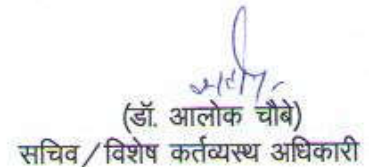 (डॉ. आलोक चौबे)
सचिव/विशेष कर्तव्यस्थ अधिकारी